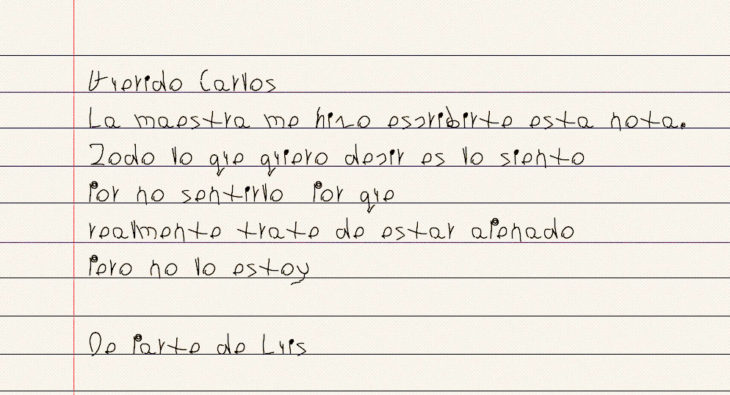 Querido Carlos
La maestra me hizo escribirte esta nota.
Todo lo que quiero decir es lo siento
Por no sentirlo Por que
realmente trate de estar apenado
Pero no lo estoy
De Parte de Luis